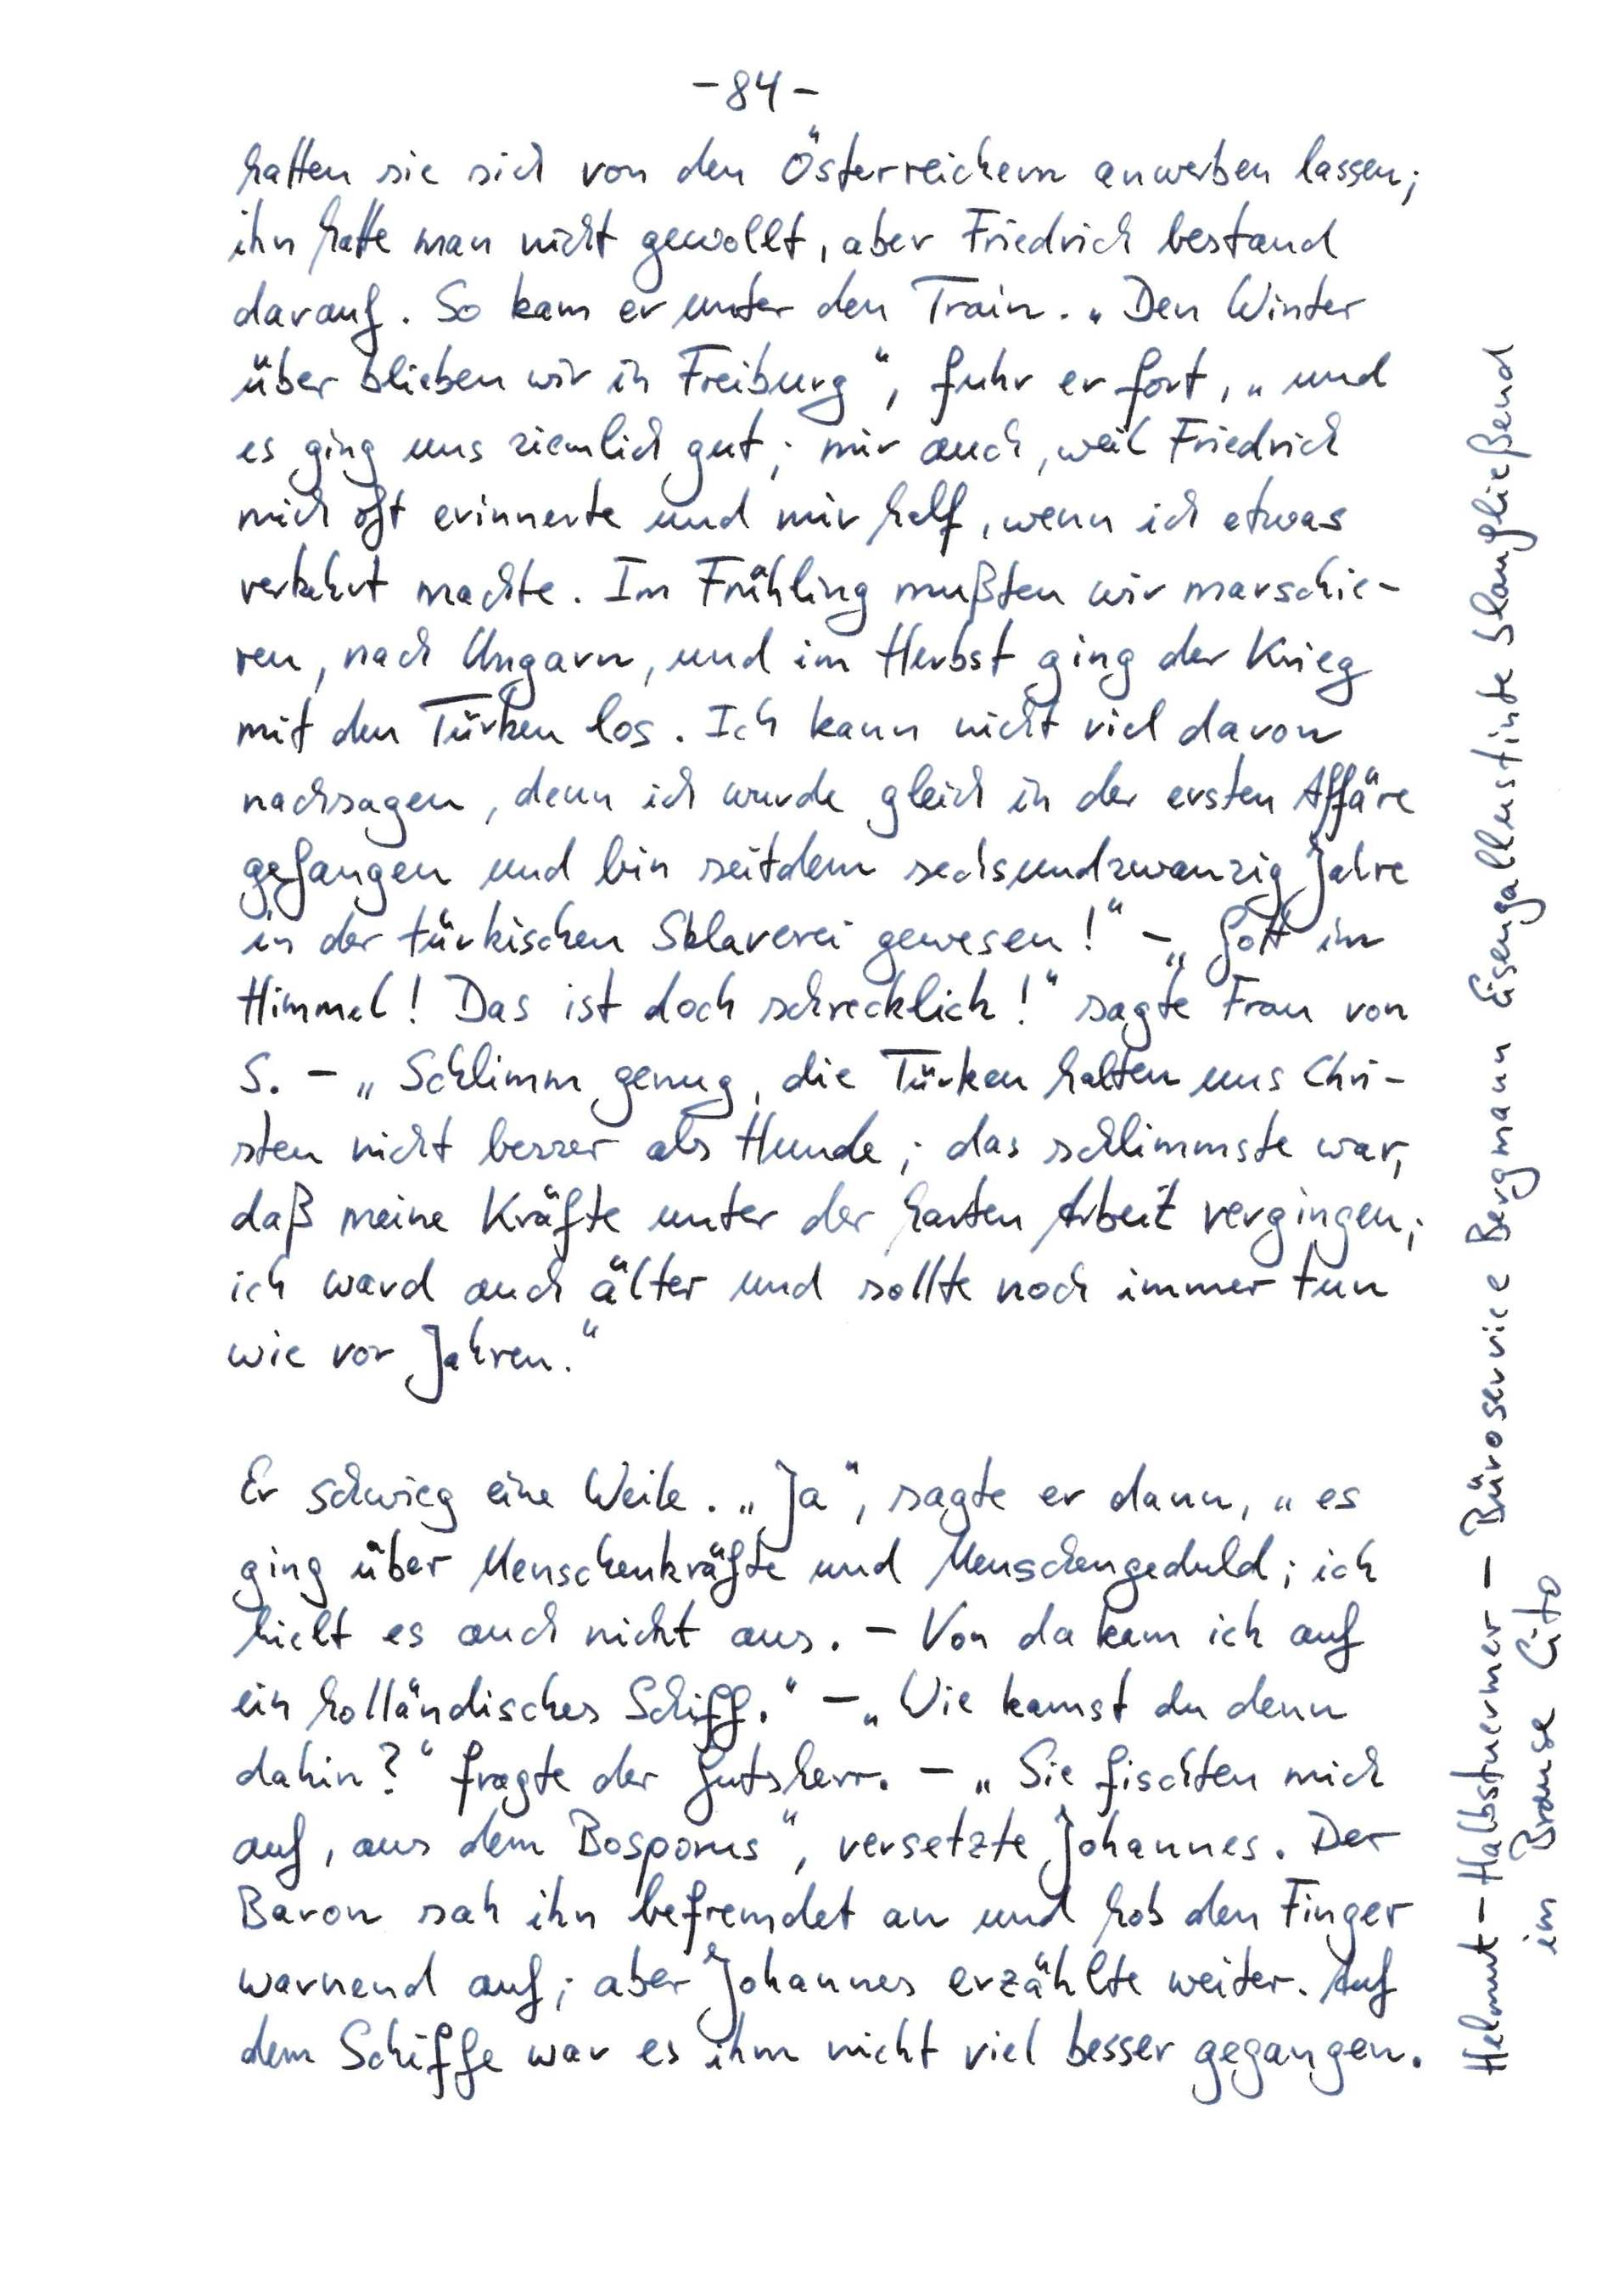 -84-
hatten sie sich von den Österreichern anwerben lassen;
ihn hatte man nicht gewollt, aber Friedrich bestand
darauf. So kam er unter den Train. „Den Winter
über blieben wir in Freiburg“, fuhr er fort, „und
es ging uns ziemlich gut; mir auch, weil Friedrich
mich oft erinnerte und mir half, wenn ich etwas
verkehrt machte. Im Frühling mußten wir marschie-
ren, nach Ungarn, und im Herbst ging der Krieg
mit den Türken los. Ich kann nicht viel davon
nachsagen, denn ich wurde gleich in der ersten Affäre
gefangen und bin seitdem sechsundzwanzig Jahre
in der türkischen Sklaverei gewesen!“ – „Gott im
Himmel! Das ist doch schrecklich!“ sagte Frau von
S. – „Schlimm genug, die Türken halten uns Chri-
sten nicht besser als Hunde; das schlimmste war,
daß meine Kräfte unter der harten Arbeit vergingen;
ich ward auch älter und sollte noch immer tun
wie vor Jahren.“
Er schwieg eine Weile. „Ja“, sagte er dann, „es
ging über Menschenkräfte und Menschengeduld; ich
hielt es auch nicht aus. – Von da kam ich auf
ein holländisches Schiff.“ – „Wie kamst du denn
dahin?“ fragte der Gutsherr. – „Sie fischten mich
auf, aus dem Bosporus“, versetzte Johannes. Der
Baron sah ihn befremdet an und hob den Finger
warnend auf; aber Johannes erzählte weiter. Auf
dem Schiffe war es ihm nicht viel besser gegangen.
Helmut-Halbstuermer – Büroservice Bergmann Eisengallustinte blaugließend
im Brause Cito